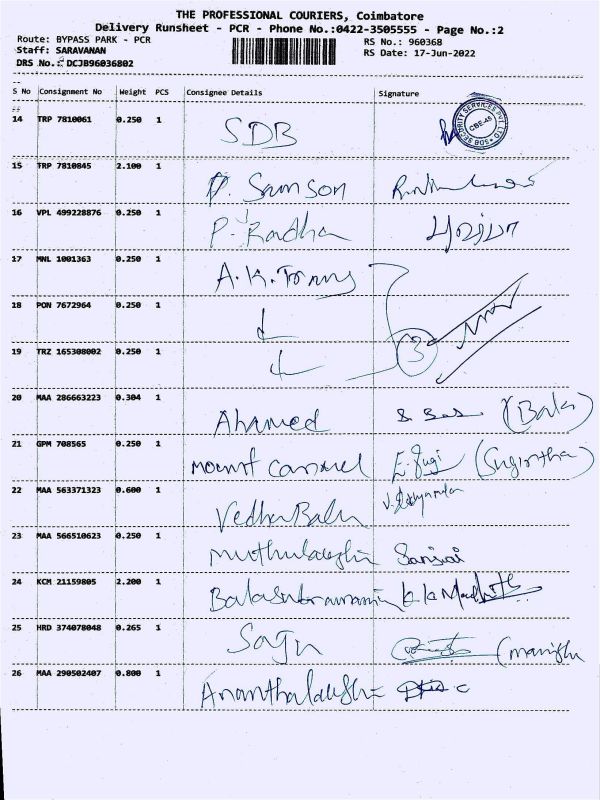 THE PROFESSIONAL COURIERS, Coimbatore
Delivery Runsheet - PCR - Phone No.:0422-3505555 - Page No.:2
Route: BYPASS PARK - PCR RS No.: 960368
Staff: SARAVANAN RS Date: 17-Jun-2022
DRS No.: DCJB96036802
S No Consignment No Weight PCS Consignee Details Signature
14 TRP 7810061 0.250 1 SDB SDB SECURITY SERVICES PVT LTD CBE-45
15 TRP 7810845 2.100 1 P. Samson
16 VPL 499228876 0.250 1 P. Radha
17 MNL 1001363 0.250 1 A.K. Tomy
18 PON 7672964 0.250 1
19 TRZ 165308002 0.250 1 3
20 MAA 286663223 0.304 1 Ahamed (Bala)
21 GPM 708565 0.250 1 Mount Carmel E. Sugi (Sugirtha)
22 MAA 563371323 0.600 1 Vedha Balu
23 MAA 566510623 0.250 1 Muthulakshmi
24 KCM 21159805 2.200 1 Balasubramani
25 HRD 374078048 0.265 1 Saju
26 MAA 290502407 0.800 1